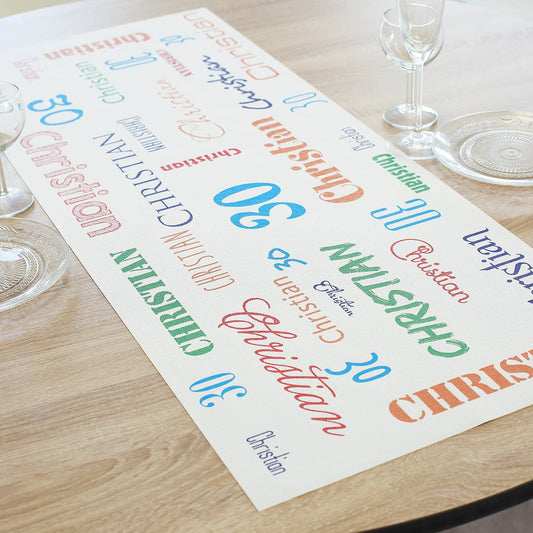 Christian
30
Christian
Christian
30
CHRISTIAN
Christian
Christian
Christian
30
30
Christian
Christian
CHRISTIAN
Christian
Christian
Christian
CHRISTIAN
Christian
30
30
Christian
Christian
CHRISTIAN
30
CHRISTIAN
Christian
CHRISTIAN
Christian
Christian
Christian
30
30
Christian
CHRISTIAN
Christian